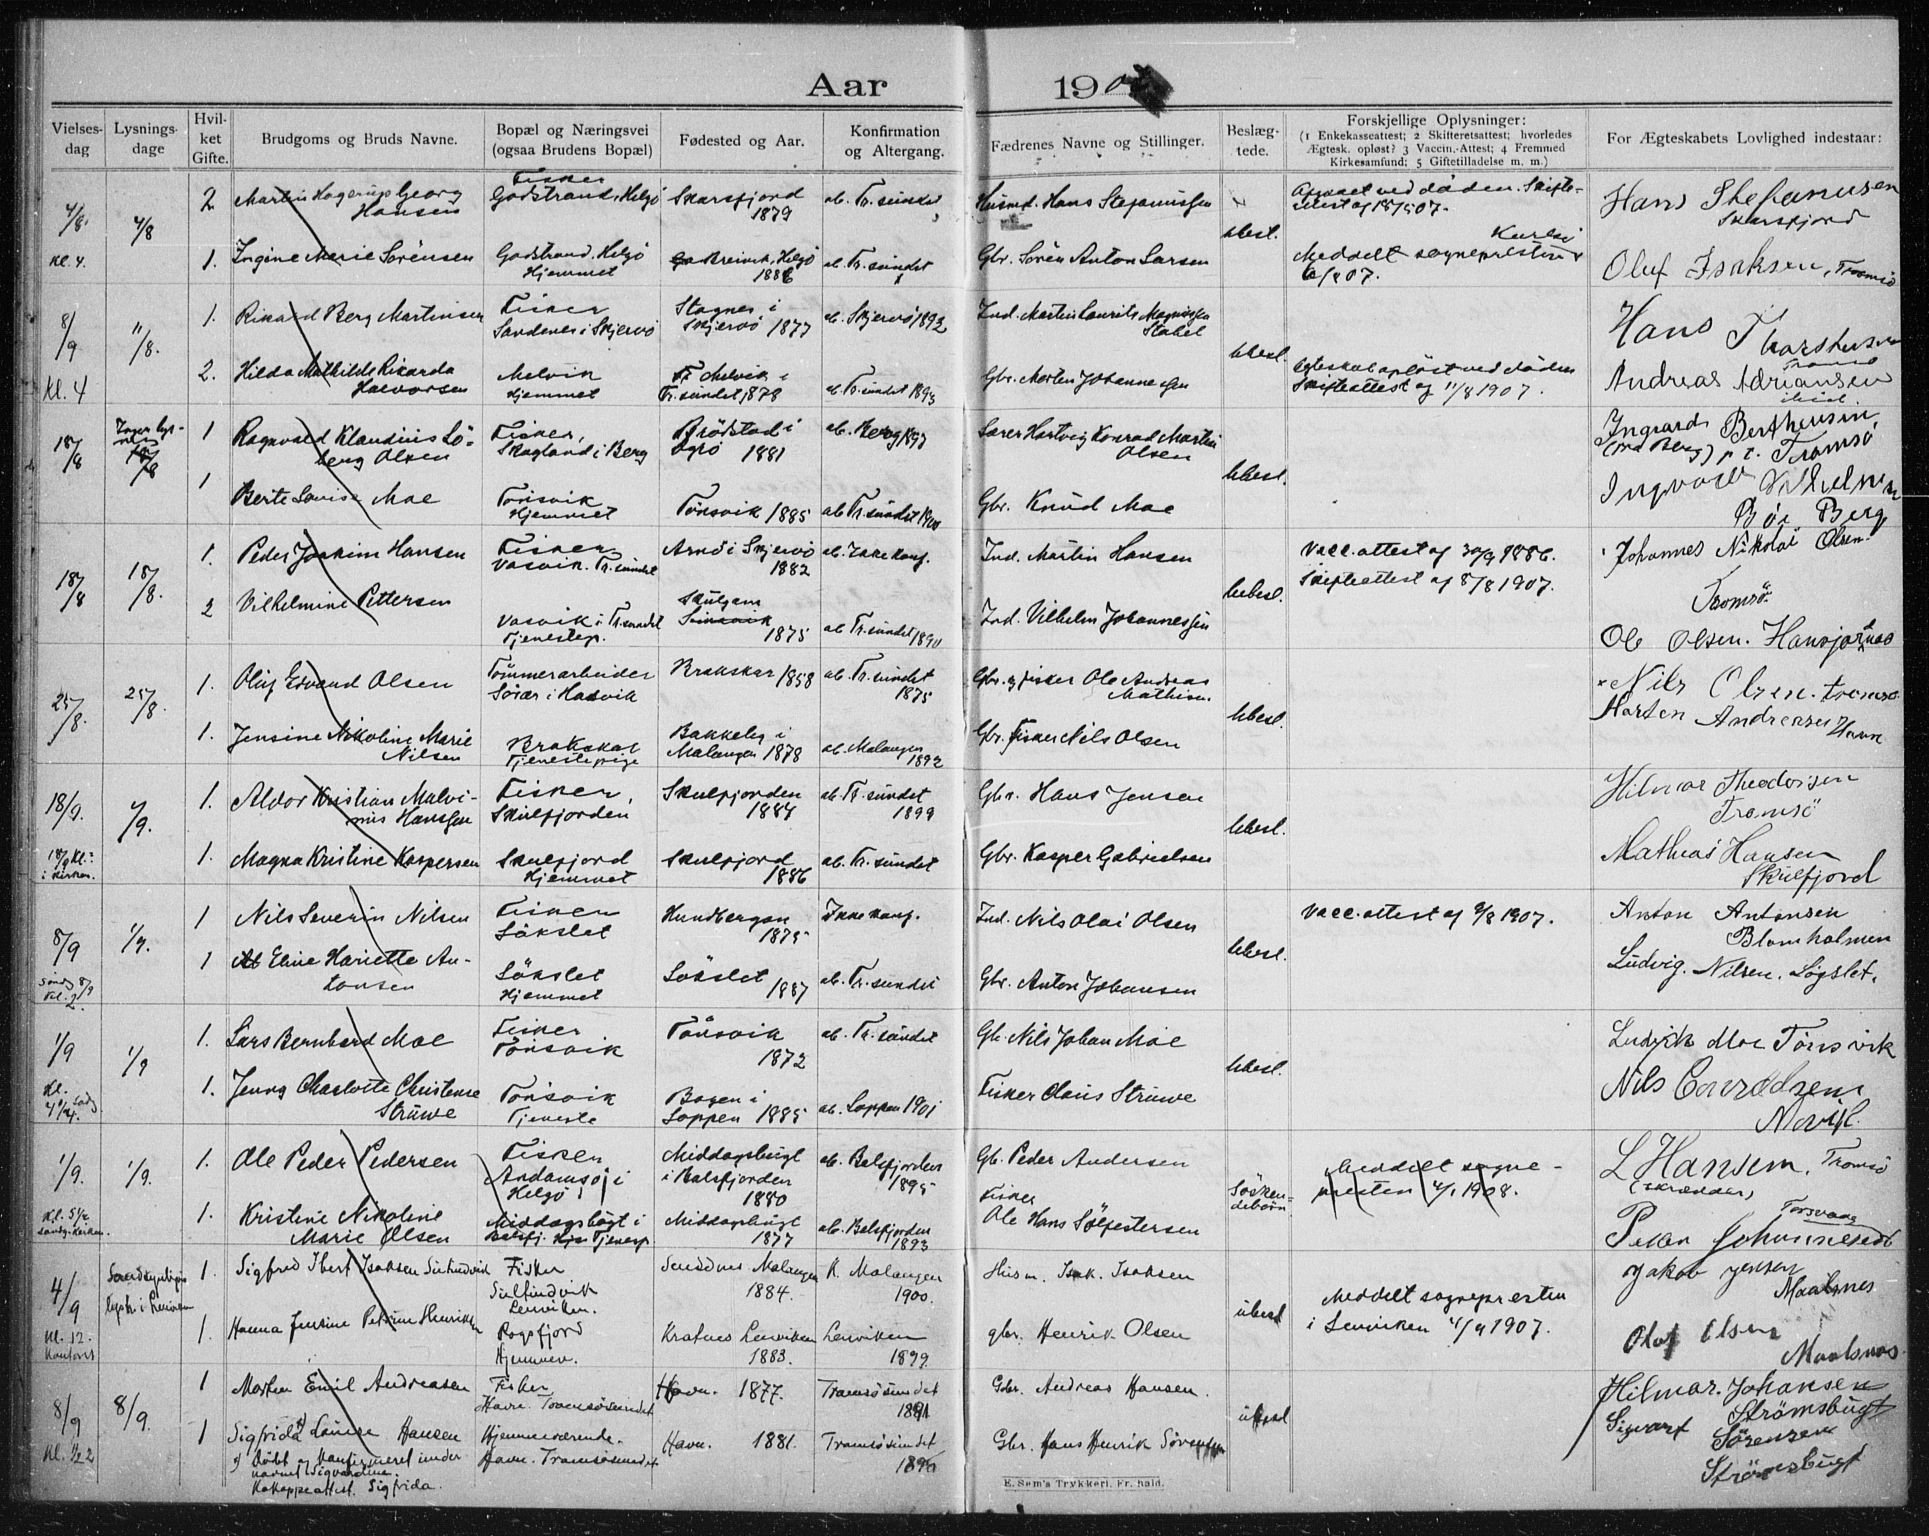 Aar 190
Vielses-dag
Lysnings-dage
Hvil-ket Gifte.
Brudgoms og Bruds Navne.
Bopæl og Næringsvei (ogsaa Brudens Bopæl)
Fødested og Aar.
Konfirmation og Altergang.
Fædrenes Navne og Stillinger.
Beslæg-tede.
Forskjellige Oplysninger:
(1 Enkekasseattest; 2 Skifteretsattest; hvorledes
Ægtesk. opløst? 3 Vaccin.-Attest; 4 Fremmed
Kirkesamfund; 5 Giftetilladelse m. m.)
For Ægteskabets Lovlighed indestaar:
4/8. 4/8 2 Martin Hagerup Georg Hansen Fisker Godstrand, Helgö Skarsfjord 1879 ab. Tr.sundet Husmd. Hans Stefanussen
ubesl. ved döden. Skifte-attest af 18/5 07. Hans Stefanusen Skarsfjord
Kl. 4. 1. Ingine Marie Sörensen Godstrand, Helgö Hjemmet Breivik, Helgö 1886 ab. Tr.sundet Gbr. Sören Anton Larsen
Meddelt sognepresten Karlsö Oluf Isaksen, Tromsö
8/9 11/8. 1. Rikard Berg Martinsen Fisker Sandenes i Skjervö Stagnes i Skjervö 1877 ab. Skjervö 1892 Ind. Martin Laurits Magnussen Stabel
ubesl. Hans Thorsteusen
Kl. 4 2. Hilda Mathilde Rikarda Halvorsen Melvik Hjemmet Melvik i Tr.sundet 1878 ab. Tr.sundet 1893 Gbr. Morten Johannessen
Egteskab oplöst ved döden Skifteattest af 11/8 1907. Andreas Adriansen Tromsö
18/8 1 Ragnvald Klaudius Söberg Olsen Fisker, Skogland i Berg Brödstad i 1881 ab. Berg 1897 Lærer Hartvig Konrad Martin Olsen
ubesl. Ingvard Berthensen (fra Berg) p. t. Tromsö
1 Berte Lovise Moe Tönsvik Hjemmet Tönsvik 1885 ab. Tr.sundet 1900 Gbr. Knud Moe
Ingvald Vilhelmsen Böe Berg
18/8 18/8. 1. Peder Joakim Hansen Fisker, Vasvik. Tr.sundet Arnö i Skjervö 1882 ab. Ikke konf. Ind. Martin Hansen
ubesl. Vacc.attest af 30/9 1886. Johannes Nikolai Olsen. Tromsö.
2 Vilhelmine Pettersen Vasvik i Tr.sundet Tjenestep. Skulgam 1875 ab. Tr.sundet 1890 Ind. Vilhelm Johannessen
Skifteattest af 8/8 1907. Ole Olsen. Hansjordnes
25/8. 25/8. 1. Oluf Edvard Olsen Tömmerarbeider Sörær i Hasvik Brakskar 1858 ab. Tr.sundet 1875 Gbr. og fisker Ole Andreas Mathisen
ubesl. Nils Olsen. Tromsö
1. Jensine Nikoline Marie Nilsen Brakskar Tjenestepige Bakkeleg i Malangen 1878 ab. Malangen 1892 Gbr. Fisker Nils Olsen
Morten Andreasen Havn
18/9. 4/9. 1. Aldor Kristian Malvinius Hanssen Fisker, Skulfjorden Skulfjorden 1884 ab. Tr.sundet 1899 Gbr. Hans Jensen
ubesl. Hilmar Theodorsen Tromsö
18/9 Kl. i kirken. 1. Magna Kristine Kaspersen Skulfjord Hjemmet Skulfjord 1886 ab. Tr.sundet Gbr. Kasper Gabrielsen
Mathias Hansen Skulfjord
8/9 1/9. 1 Nils Severin Nilsen Fisker Lökslet Hundbergan 1875 Ikke konf. Ind. Nils Olai Olsen
ubesl. Vacc.attest af 9/8 1907. Anton Antonsen Blomholmen
Söndg 8/9 Kl. 2. 1 Eline Hariette Antonsen Lökslet Hjemmet Lökslet 1887 ab. Tr.sundet Gbr. Anton Johansen
Ludvig. Nilsen. Løgslet.
1/9 1/9 1. Lars Bernhard Moe Fisker Tönsvik Tönsvik 1872 ab. Tr.sundet Gbr. Nils Johan Moe
ubesl. Ludvik Moe Tönsvik
Kl. 4 1/4. 1. Jenny Charlotte Christense Strüwe Tönsvik Tjeneste Bogen i Loppen 1885 ab. Loppen 1901 Fisker Claus Strüwe
Nils Conradsen
1/9. 1/9. 1. Ole Peder Pedersen Fisker Andamsø i Helgö Middagsbugt i Balsfjorden 1880 ab. Balsfjorden 1895 Gb. Peder Andersen
Söskendebörn Meddelt sognepresten 4/1 1908. L Hansen. Tromsö (skrædder)
Kl. 5 1/2 Söndg. Kirken. 1. Kristine Nikoline Marie Olsen Middagsbugt i Balsfj. Tjenesp. Middagsbugt 1877 ab. Balsfjorden 1893 Fisker Ole Hans Sölfestersen
Peder Johannesen Torsvaag
4/9 1. Sigfred Ibert Isaksen Fisker Lenviken. Malangen 1884. K. Malangen 1900. Husm. Isak. Isaksen
ubesl Meddelt sognepresten i Lenviken 4/9 1907. Jakob Jensen Maalsnes
Kl. 12. Kontoret 1. Hanna Jensine Petrine Henriksen Rogsfjord Hjemmev. Kratnes Lenviken 1883. Lenviken 1899. gbr. Henrik Olsen
Olaf Olsen Maalsnes
8/9 8/9. 1 Morten Emil Andreasen Fisker Havn. Tromsösundet Havn. 1877. Tromsösundet 1891 Gbr. Andreas Hansen.
ubesl Hilmar. Johansen Strömsbugt
Kl. 1/2 2 1 Sigfrida Louise Hansen Hjemmeværende. Havn. Tromsösundet Havn. 1881. Tromsösundet Gbr. Hans Henrik Sörensen
Sigvart Sörensen Strömsbugt
Döbt og konfirmeret under navnet Sigvardine.
Kokoppeattest. Sigfrida.
E. Sem's Trykkeri. Fr.hald.